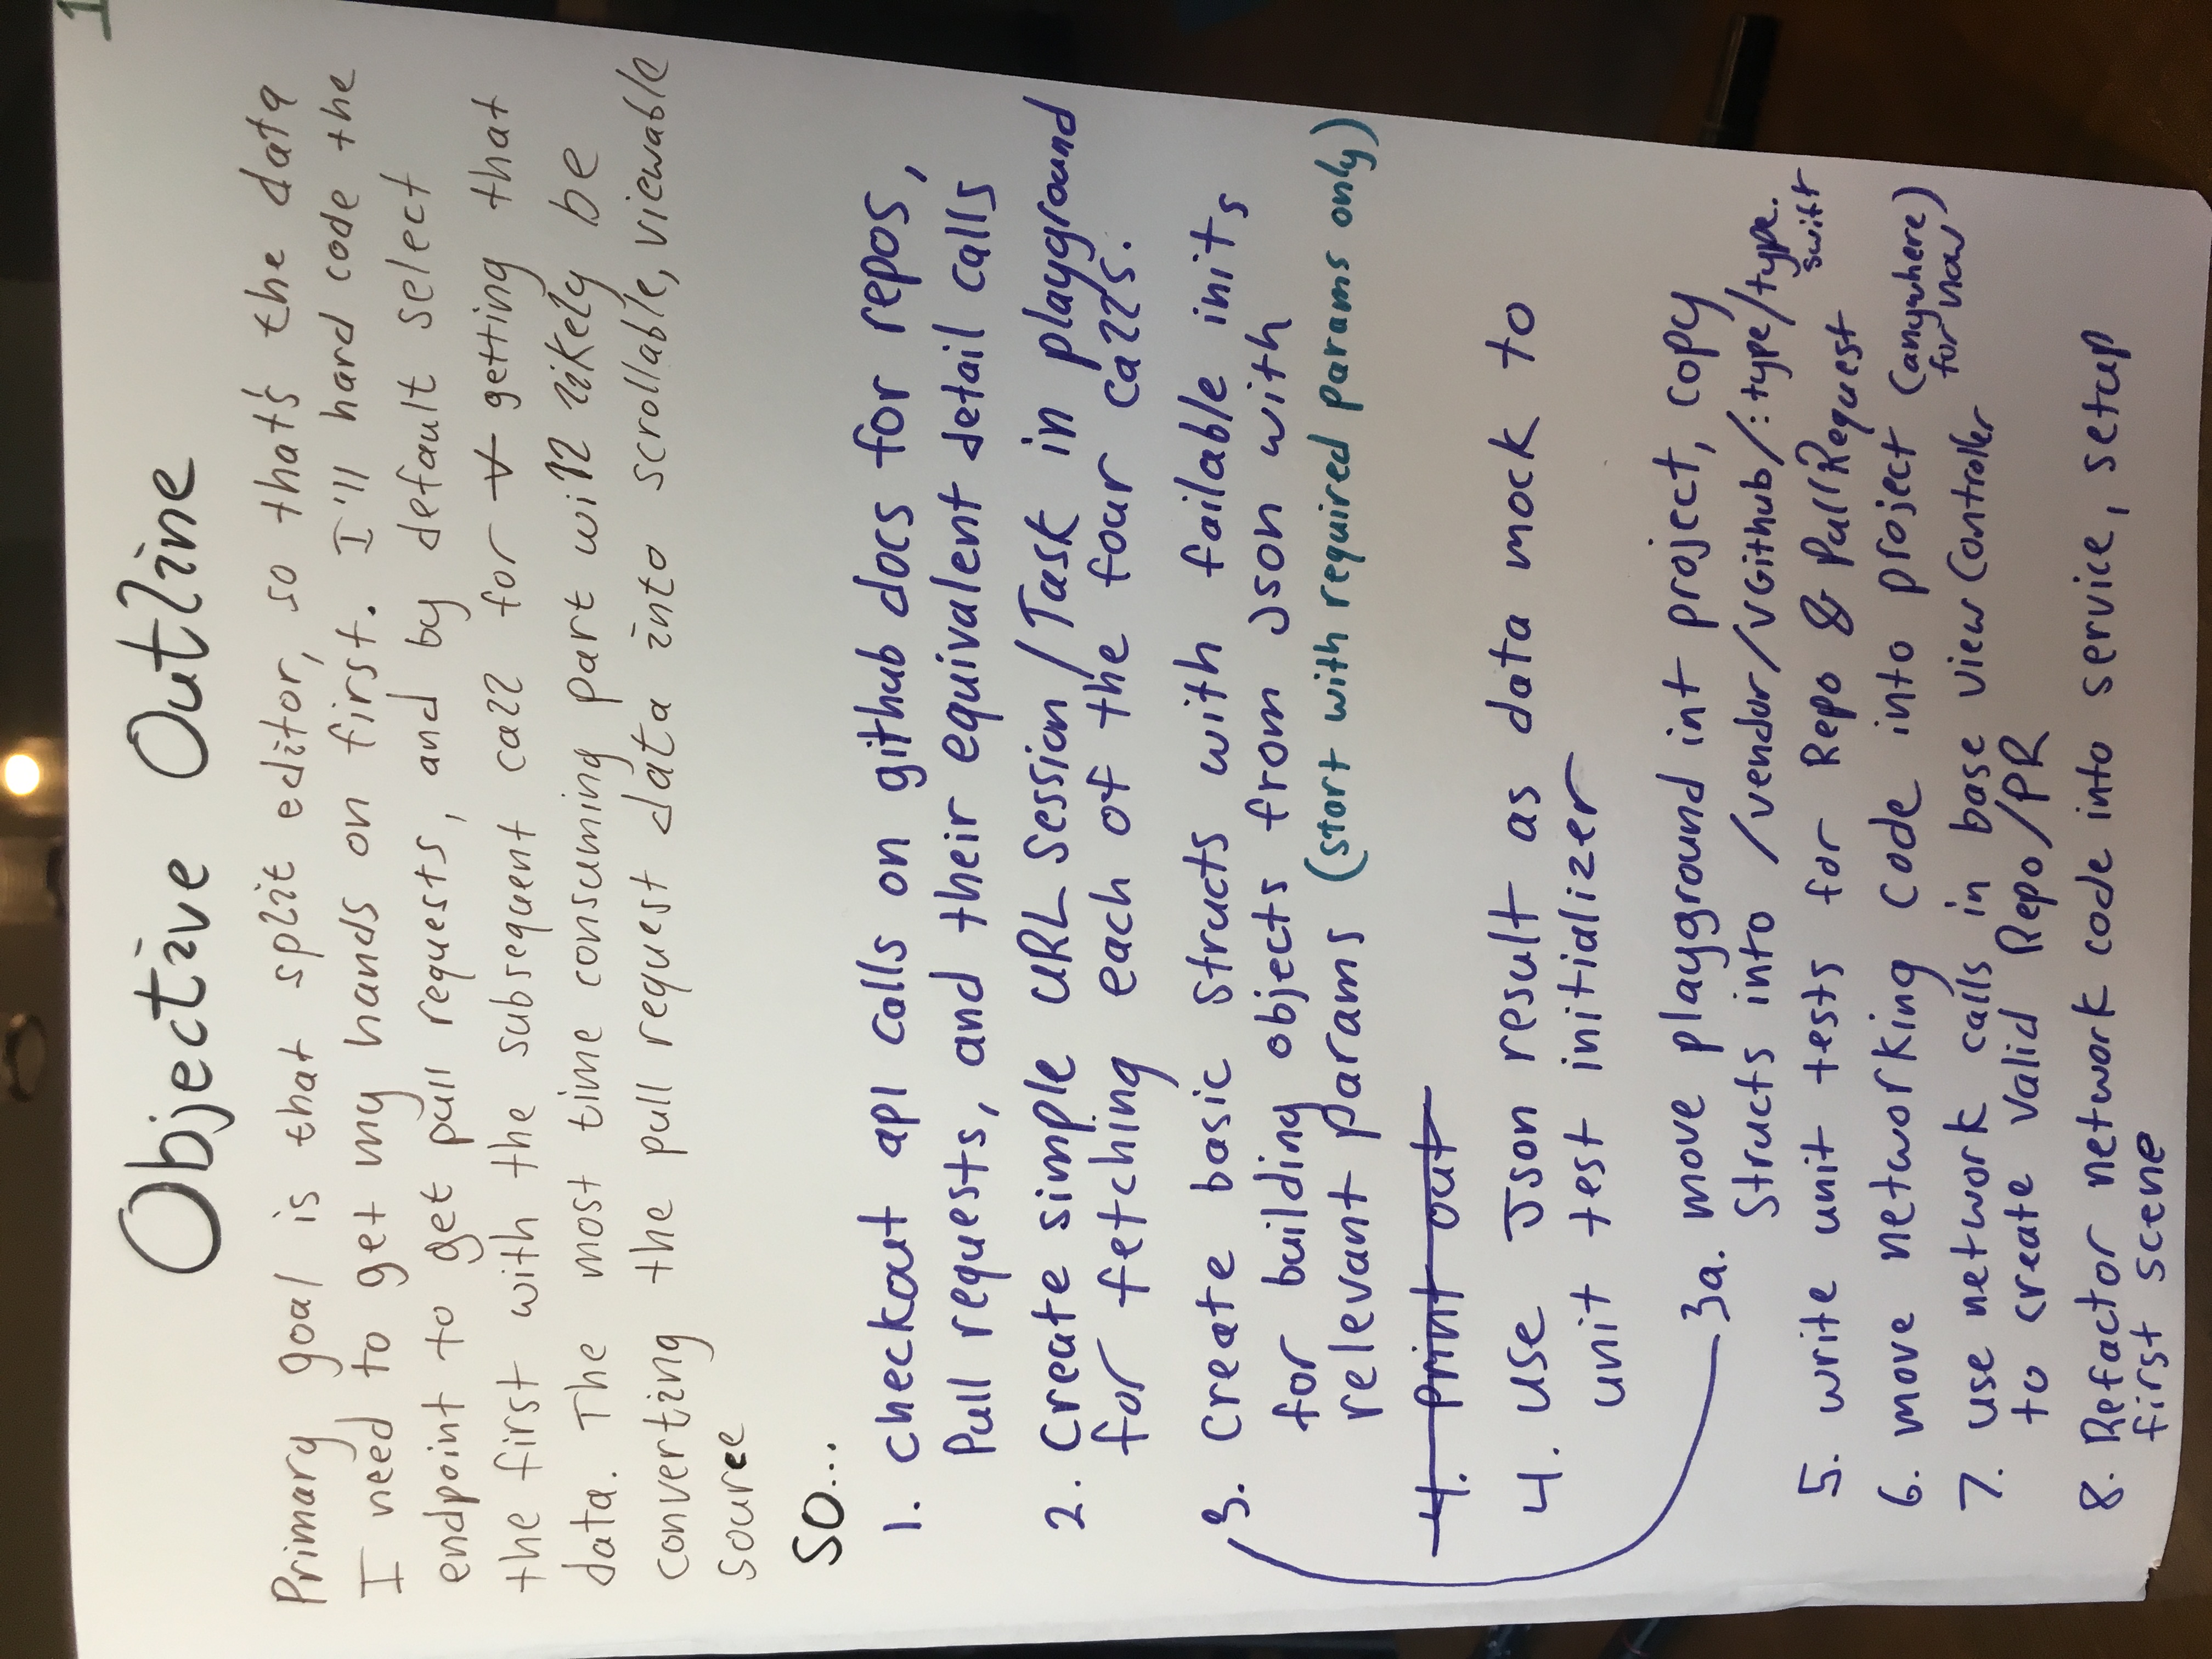 1
Objective Outline
Primary goal is that split editor, so that's the data
I need to get my hands on first. I'll hard code the
endpoint to get pull requests, and by default select
the first with the subsequent call for getting that
data. The most time consuming part will likely be
converting the pull request data into scrollable, viewable
source
SO...
1. checkout api calls on github docs for repos,
Pull requests, and their equivalent detail calls
2. Create simple URL Session/Task in playground
for fetching each of the four calls.
3. Create basic structs with failable inits
for building objects from Json with
relevant params (start with required params only)
4. Print out
4. use Json result as data mock to
unit test initializer
3a. move playground int project, copy
Structs into /vendor/VGithub/:type/type.
swift
5. write unit tests for Repo & PullRequest
6. move networking code into project (anywhere)
for now
7. use network calls in base view Controller
to create valid Repo/PR
8. Refactor network code into service, setup
first scene